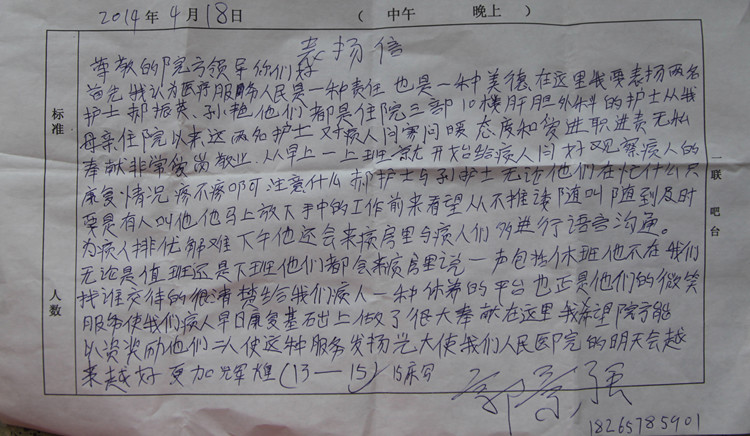 2014年4月18日 （ 中午 晚上 ）
表扬信
尊敬的院方领导你们好
首先我认为医疗服务人民是一种责任也是一种美德在这里我要表扬两名
护士郝振英、孙艳他们都是住院三部10楼肝胆外科的护士从我
母亲住院以来这两名护士对病人问寒问暖态度和爱进职进责无私
奉献非常爱岗敬业.从早上一上班就开始给病人问好观察病人的
康复情况疼不疼叮咛注意什么郝护士与孙护士无论他们在忙什么只
要是有人叫他他马上放下手中的工作前来看望从不推诿随叫随到及时
为病人排忧解难下午他还会来病房里与病人们进行语言沟通。
无论是值班还是下班他们都会来病房里说一声包括休班他不在我们
找谁交待的很清楚给我们病人一种休养的平台也正是他们的微笑
服务使我们病人早日康复基础上做了很大奉献在这里我希望院方能
以资奖励他们二人使这种服务发扬光大使我们人民医院的明天会越
来越好更加辉煌(13—15) 15床
18265785901
标准
人数
一联吧台